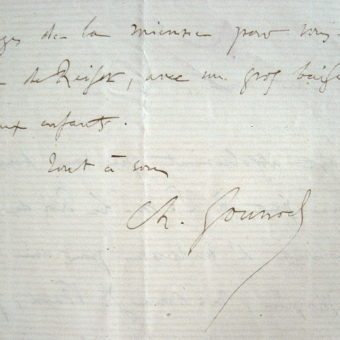 de la mienne pour vous
de Reiset, avec un gros baiser
aux enfants.
Tout à vous
Ch. Gounod